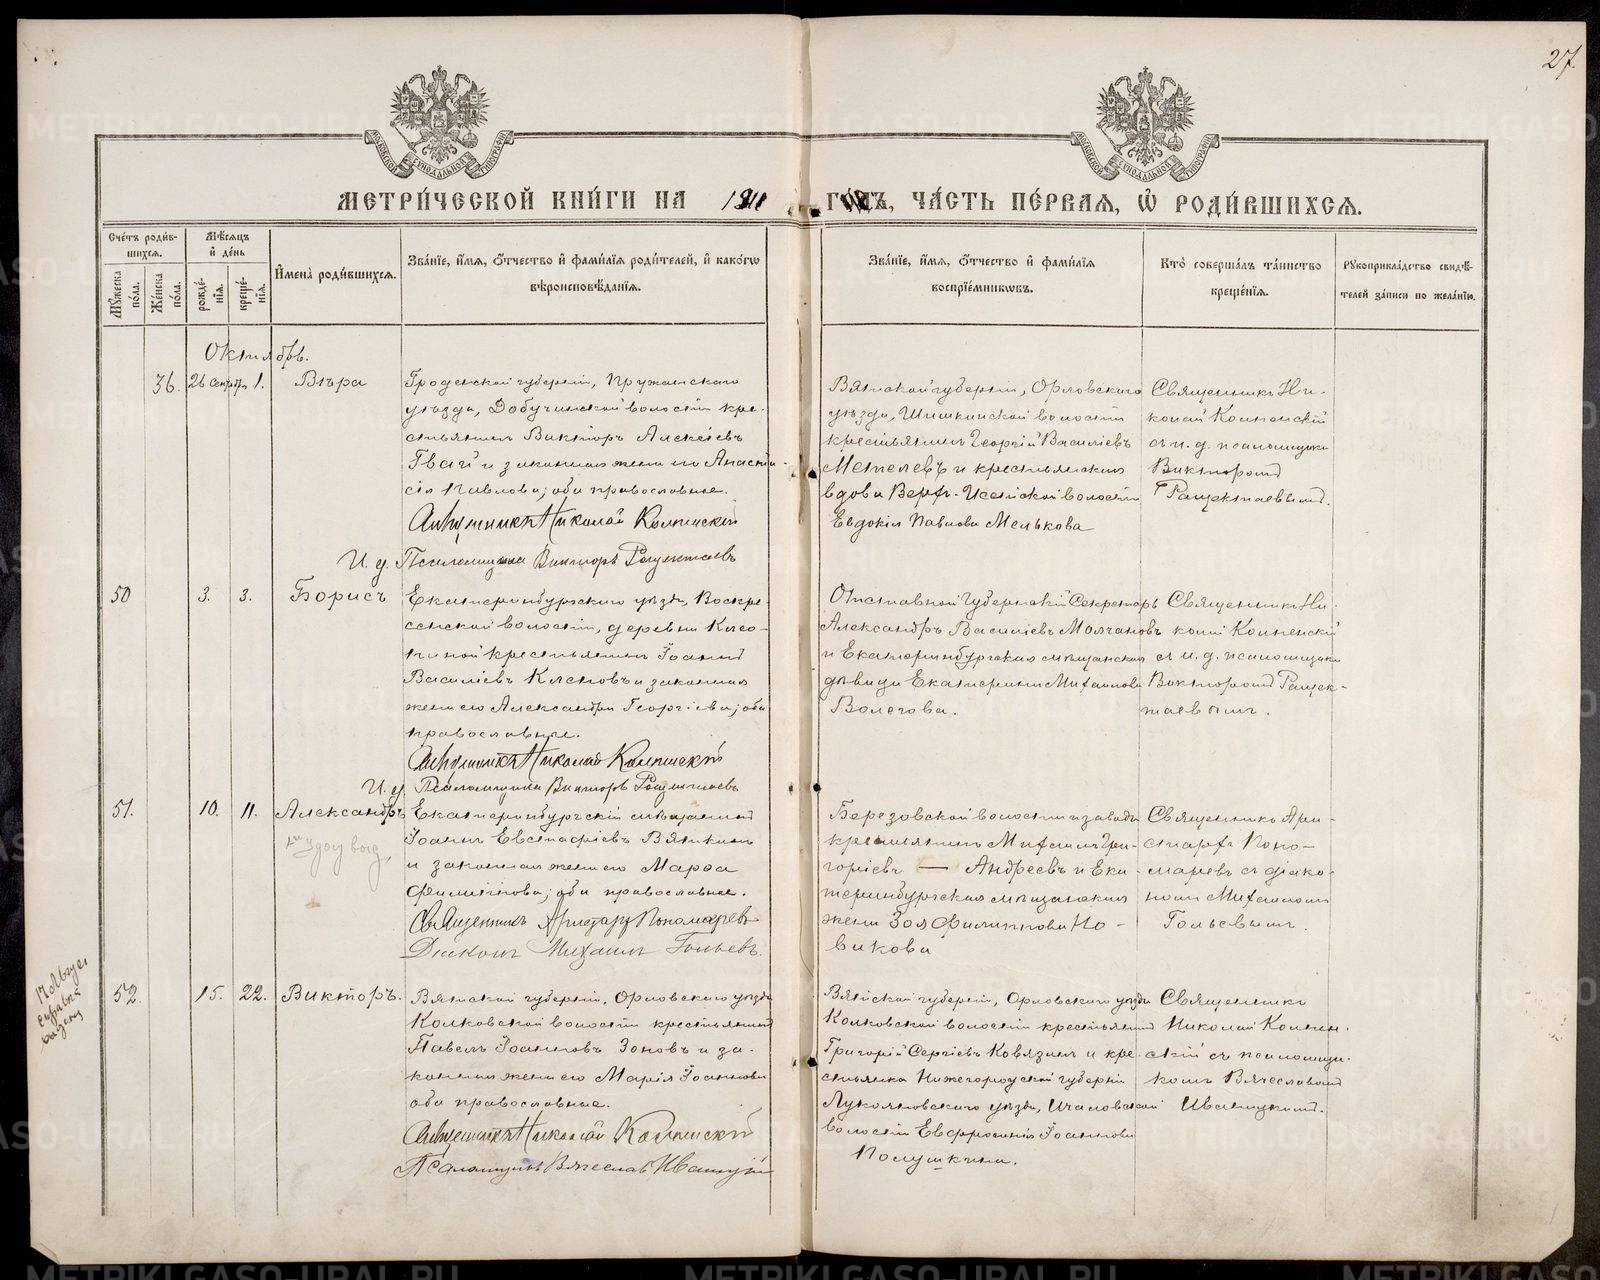 27.
МОСКОВСКОЙ СѴНОДАЛЬНОЙ ТИПОГРАФІИ
МОСКОВСКОЙ СѴНОДАЛЬНОЙ ТИПОГРАФІИ
МЕТРИ́ЧЕСКОЙ КНИ́ГИ НА 1911 ГО́ДЪ, ЧА́СТЬ ПЕ́РВАЯ, Ѡ҆ РОДИ́ВШИХСЯ.
Сче́тъ роди́в-
шихся.
Мꙋ́жеска по́ла.
Же́нска по́ла.
Мѣ́сяцъ и҆ де́нь
рожде́нїя.
креще́нїя.
И҆мена̀ роди́вшихся.
Зва́нїе, и҆́мя, ѻ҆́тчество и҆ фами́лїя роди́телей, и҆ како́гѡ
вѣроисповѣ́данїя.
Зва́нїе, и҆́мя, ѻ҆́тчество и҆ фами́лїя
воспрїе́мникѡвъ.
Кто̀ соверша́лъ та́инство
креще́нїя.
Рꙋкоприкла́дство свидѣ́-
телей за́писи по жела́нїю.
Октябрь.
36. 26 Сентября 1. Вѣра
Гродненской губерніи, Пружанскаго
уѣзда, Добучинской волости кре-
стьянинъ Викторъ Алексѣевъ
Гвай и законная жена его Анаста-
сія Павлова; оба православные.
Священникъ Николай Колпинскій
И. д. Псаломщика Викторъ Ращектаевъ
Вятской губерніи, Орловскаго
уѣзда, Шишкинской волости
крестьянинъ Георгій Васильевъ
Метелевъ и крестьянская
вдова Верх-Исетской волости
Евдокія Павлова Мелькова
Священникъ Ни-
колай Колпенскій
съ и. д. псаломщика
Викторомъ
Ращектаевымъ.
50 3. 3. Борисъ
Екатеринбургскаго уѣзда, Воскре-
сенской волости, деревни
крестьянинъ Іоаннъ
Васильевъ и законная
жена его Александра Георгіева; оба
православные.
Священникъ Николай Колпинскій
И. д. Псаломщика Викторъ Ращектаевъ
Отставной Губернскій Секретарь
Александръ Васильевъ Молчановъ
и Екатеринбургская мѣщанская
дѣвица Екатерина Михаилова
Волегова.
Священникъ Ни-
колай Колпенскій
съ и. д. псаломщика
Викторомъ Ращек-
таевымъ.
51. 10. 11. Александръ
Екатеринбургскій мѣщанинъ
Іоаннъ Евстафіевъ Вяткинъ
и законная жена его Марѳа
Филиппова; оба православные.
Священникъ Аристархъ Пономаревъ
Діаконъ Михаилъ Гольевъ.
Березовской волости и завода
крестьянинъ Михаилъ Гри-
горіевъ — Андреевъ и Ека-
теринбургская мѣщанская
жена Зоя Филиппова Но-
викова
Священникъ Ари-
стархъ Поно-
маревъ съ діако-
номъ Михаиломъ
Гольевымъ.
52. 15. 22. Викторъ.
Вятской губерніи, Орловскаго уѣзда
Колковской волости крестьянинъ
Павелъ Іоанновъ Зоновъ и за-
конная жена его Марія Іоаннова
оба православные.
Священникъ Николай Колпинскій
Псаломщикъ Вячеславъ Иваницкій
Вятской губерніи, Орловскаго уѣзда
Колковской волости крестьянинъ
Григорій Сергіевъ Ковязинъ и кре-
стьянка Нижегородской губерніи
Лукояновскаго уѣзда, Ичаловской
волости Евфросинія Іоаннова
Полушкина.
Священникъ
Николай Колпен-
скій съ псаломщи-
комъ Вячеславомъ
Иваницкимъ.
METRIKI.GASO-URAL.RU